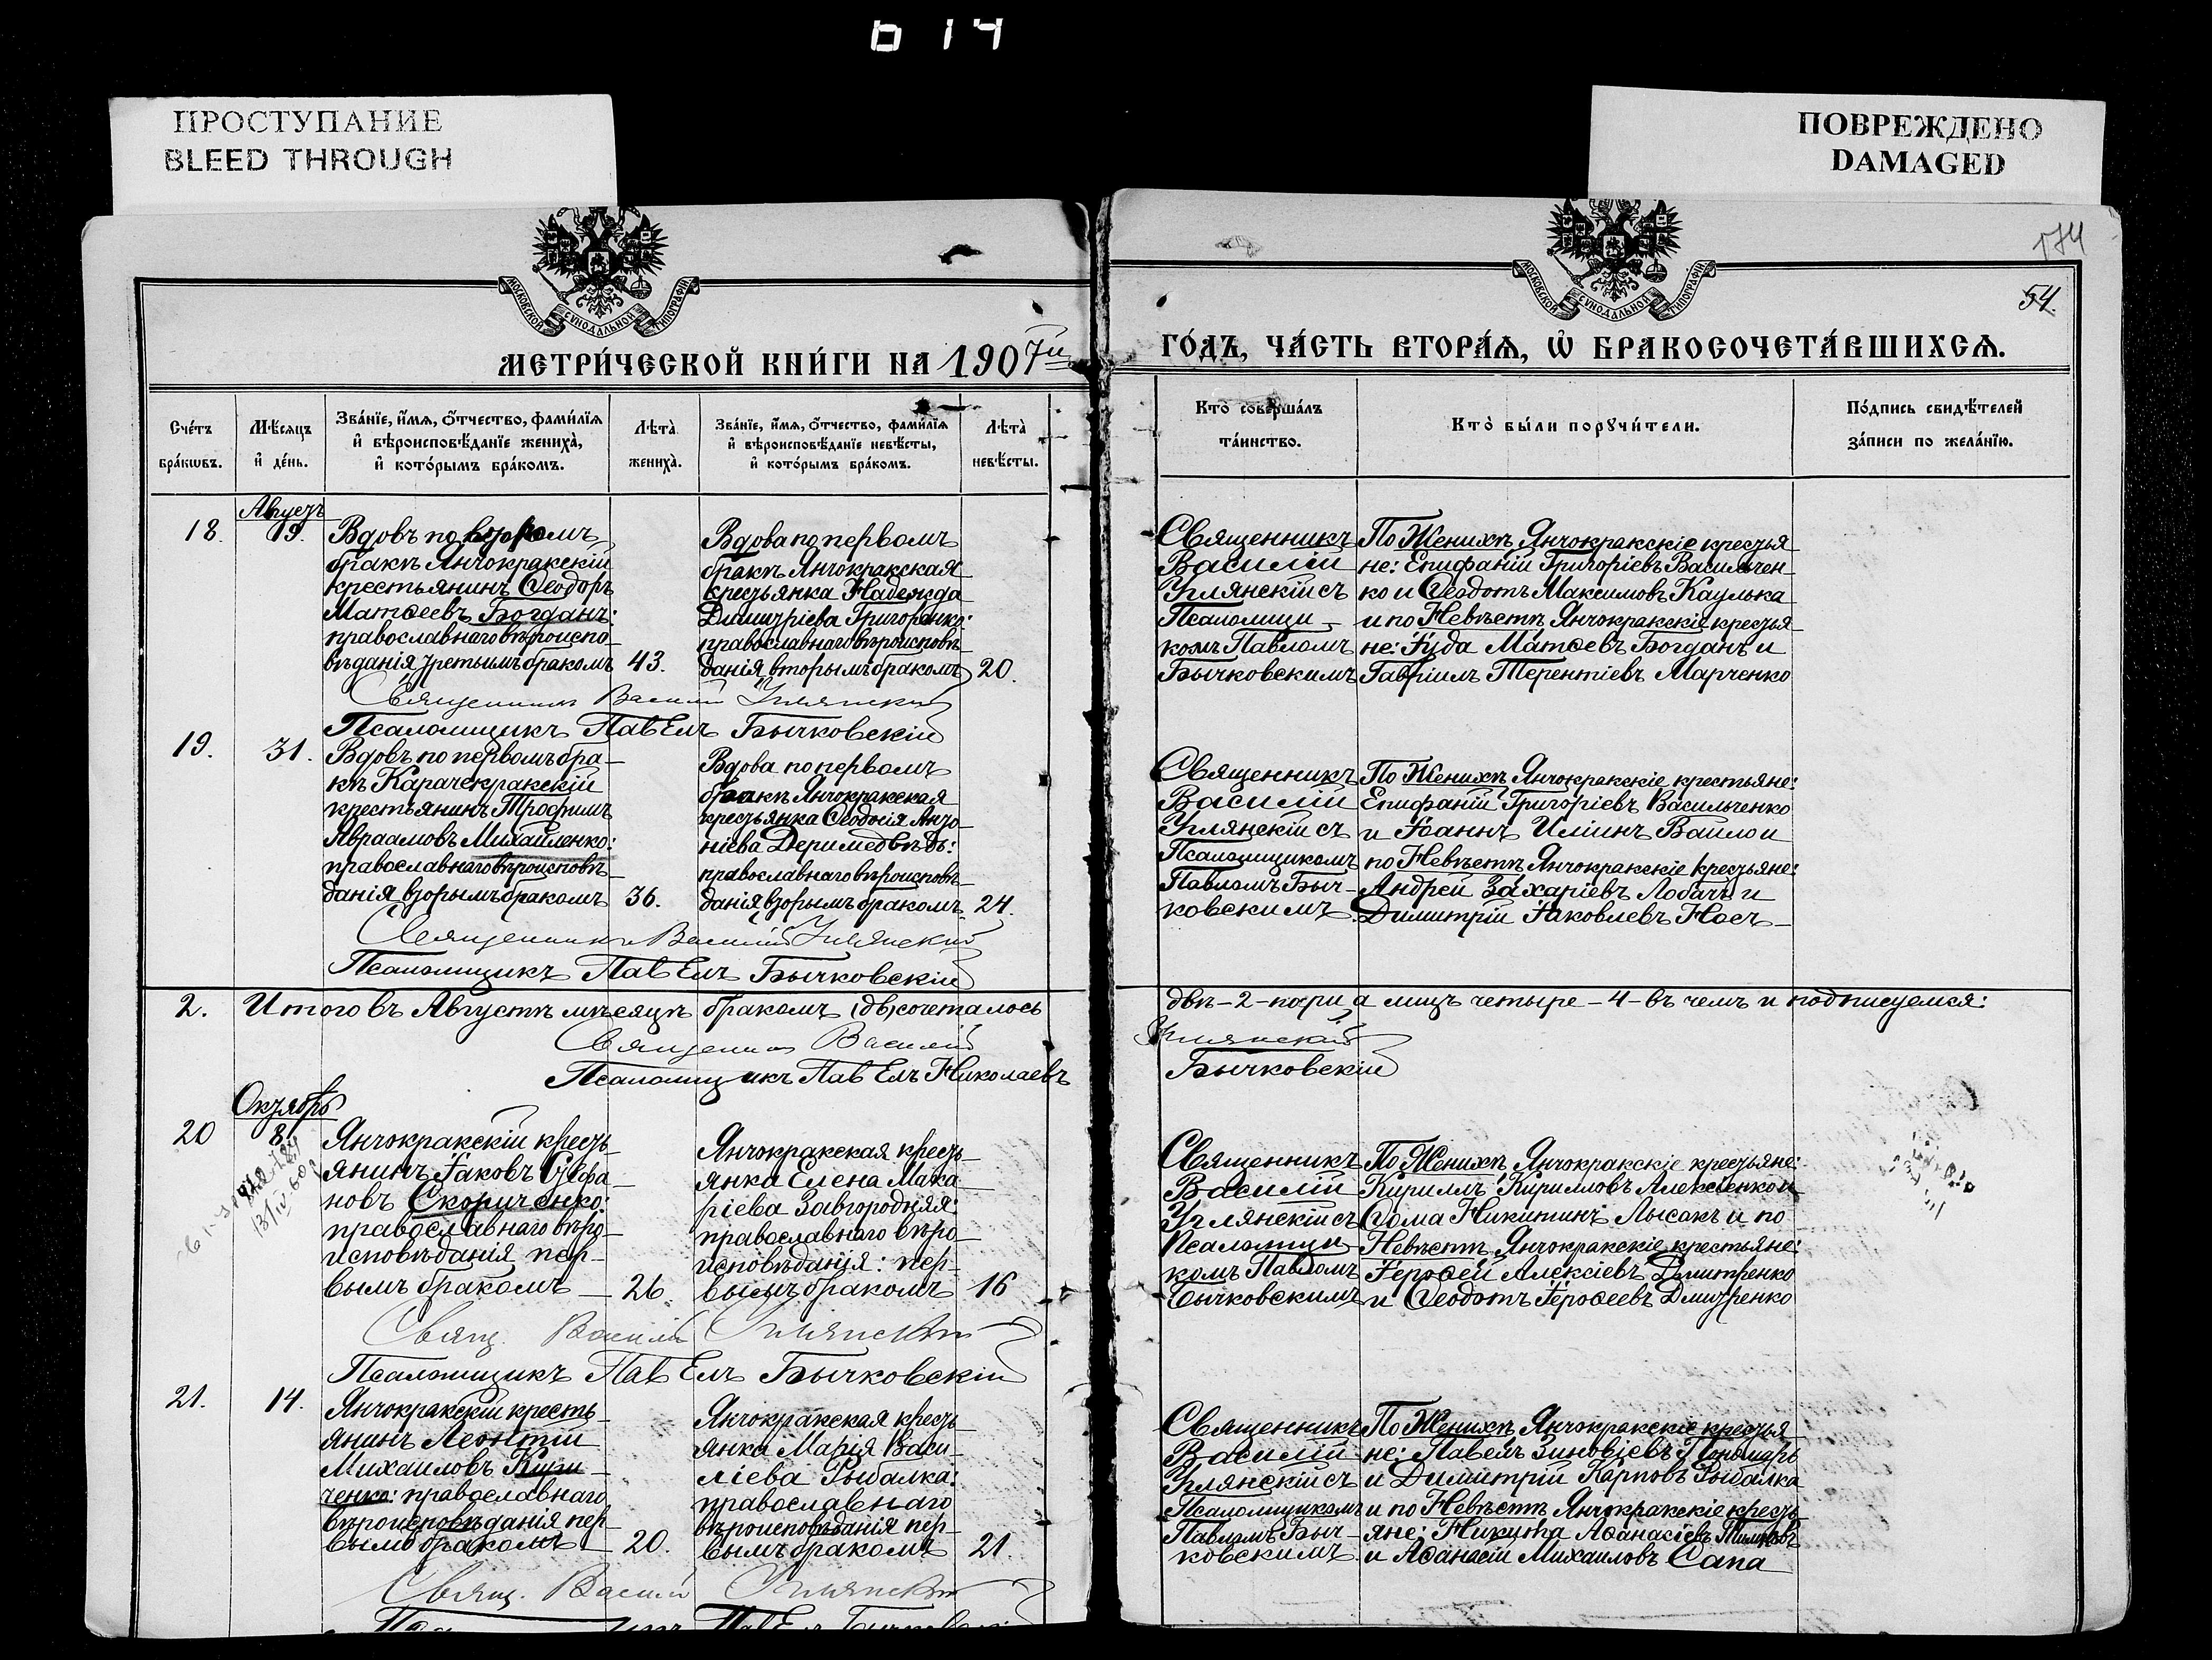 614
ПРОСТУПАНИЕ
BLEED THROUGH
ПОВРЕЖДЕНО
DAMAGED
174
54.
МОСКОВСКОЙ СѴНОДАЛЬНОЙ ТИПОГРАФІИ
МОСКОВСКОЙ СѴНОДАЛЬНОЙ ТИПОГРАФІИ
МЕТРИ́ЧЕСКОЙ КНИ́ГИ НА 1907й
ГО́ДЪ, ЧА́СТЬ ВТОРА́Ѧ, Ѡ҆ БРАКОСОЧЕТА́ВШИХСѦ.
Сче́тъ
бра́кѡвъ.
Мѣ́сѧцъ
и҆ де́нь.
Зва́нїе, и҆́мѧ, ѻ҆́тчество, фами́лїѧ
и҆ вѣроисповѣ́данїе жениха̀,
и҆ кото́рымъ бра́комъ.
Лѣта̀
жениха̀.
Зва́нїе, и҆́мѧ, ѻ҆́тчество, фами́лїѧ
и҆ вѣроисповѣ́данїе невѣ́сты,
и҆ кото́рымъ бра́комъ.
Лѣта̀
невѣ́сты.
Кто̀ соверша́лъ
та́инство.
Кто̀ бы́ли порꙋчи́тели.
По́дпись свидѣ́телей
за́писи по жела́нїю.
Августъ
18.
19.
Вдовъ по второмъ
бракѣ Янчокракскій
крестьянинъ Ѳеодоръ
Матѳеевъ Богданъ:
православнаго вѣроиспо-
вѣданія третьимъ бракомъ
43.
Вдова по первомъ
бракѣ Янчокракская
крестьянка Надежда
Димитріева Григоренко:
православнаго вѣроисповѣ-
данія вторымъ бракомъ
20.
Священникъ
Василій
Углянскій съ
Псаломщи-
комъ Павломъ
Бычковскимъ
По Женихѣ Янчокракскіе крестья
не: Епифаній Григоріевъ Васильчен-
ко и Ѳеодотъ Максимовъ Каулька
и по Невѣстѣ Янчокракскіе крестья-
не: Іуда Матѳеевъ Богданъ и
Гавріилъ Терентіевъ Марченко
Священникъ Василій Углянскій
Псаломщикъ Павелъ Бычковскій
19.
31.
Вдовъ по первомъ бра-
кѣ Карачекракскій
крестьянинъ Трофимъ
Авраамовъ Михайленко:
православнаго вѣроисповѣ-
данія вторымъ бракомъ
36.
Вдова по первомъ
бракѣ Янчокракская
крестьянка Ѳеодосія Анто-
ніева Деримедвѣдь:
православнаго вѣроисповѣ-
данія вторымъ бракомъ
24.
Священникъ
Василій
Углянскій съ
Псаломщикомъ
Павломъ Быч-
ковскимъ
По Женихѣ Янчокракскіе крестьяне:
Епифаній Григоріевъ Васильченко
и Іоаннъ Иліинъ Вайло и
по Невѣстѣ Янчокракскіе крестьяне:
Андрей Захаріевъ Лобачъ и
Димитрій Іаковлевъ Носъ
Священникъ Василій Углянскій
Псаломщикъ Павелъ Бычковскій
2. Итого въ Августѣ мѣсяцѣ бракомъ сочеталось
двѣ-2-пары а лицъ четыре-4-въ чемъ и подписуемся:
Священникъ Василій Углянскій
Псаломщикъ Павелъ Николаевъ Бычковскій
Октябрь
20
8.
Янчокракскій кресть-
янинъ Іаковъ Стефа-
новъ Скориченко:
православнаго вѣро-
исповѣданія пер-
вымъ бракомъ
26.
Янчокракская кресть-
янка Елена Мака-
ріева Завгородняя:
православнаго вѣро-
исповѣданія: пер-
вымъ бракомъ
16
Священникъ
Василій
Углянскій съ
Псаломщи
комъ Павломъ
Бычковскимъ
По Женихѣ Янчокракскіе крестьяне:
Кириллъ Кирилловъ Алексіенко и
Ѳома Никитинъ Лысакъ и по
Невѣстѣ Янчокракскіе крестьяне:
Іероѳей Алексіевъ Дмитренко
и Ѳеодотъ Іероѳеевъ Дмитренко
Свящ. Василій Углянскій
Псаломщикъ Павелъ Бычковскій
21.
14.
Янчокракскій кресть-
янинъ Леонтій
Михаиловъ Кири-
ченко: православнаго
вѣроисповѣданія пер-
вымъ бракомъ
20.
Янчокракская кресть
янка Марія Васи-
ліева Рыбалка:
православнаго
вѣроисповѣданія пер-
вымъ бракомъ
21.
Священникъ
Василій
Углянскій съ
Псаломщикомъ
Павломъ Быч-
ковскимъ
По Женихѣ Янчокракскіе крестья
не: Павелъ Зиновіевъ Пономарь
и Димитрій Карповъ Рыбалка
и по Невѣстѣ Янчокракскіе кресть-
яне: Никита Аѳанасіевъ
и Аѳанасій Михаиловъ Сапа
Свящ. Василій Углянскій
Павелъ